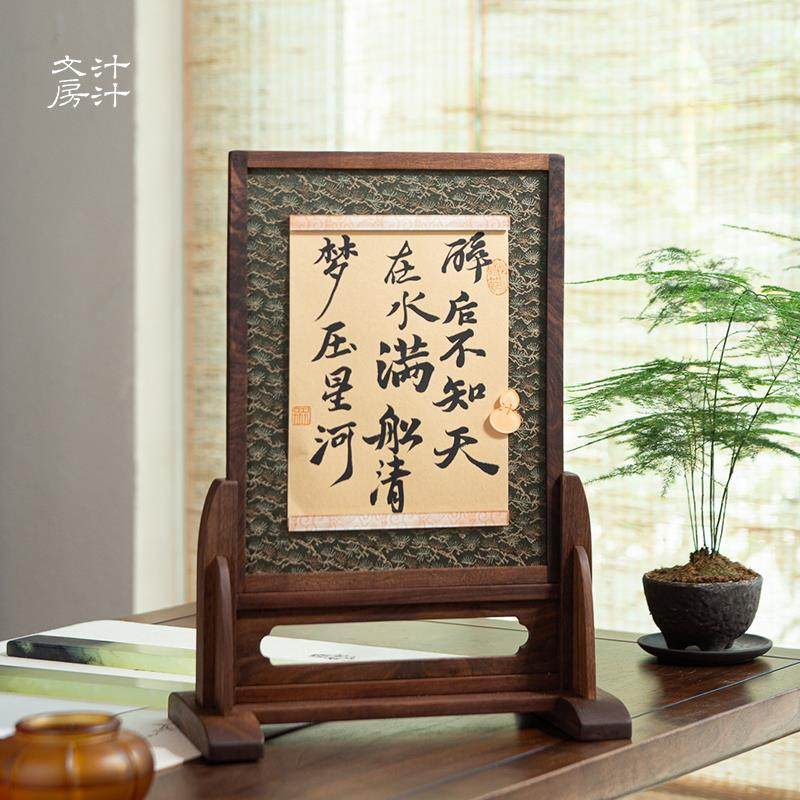 文房汁汁
醉后不知天
在水满船清
梦压星河